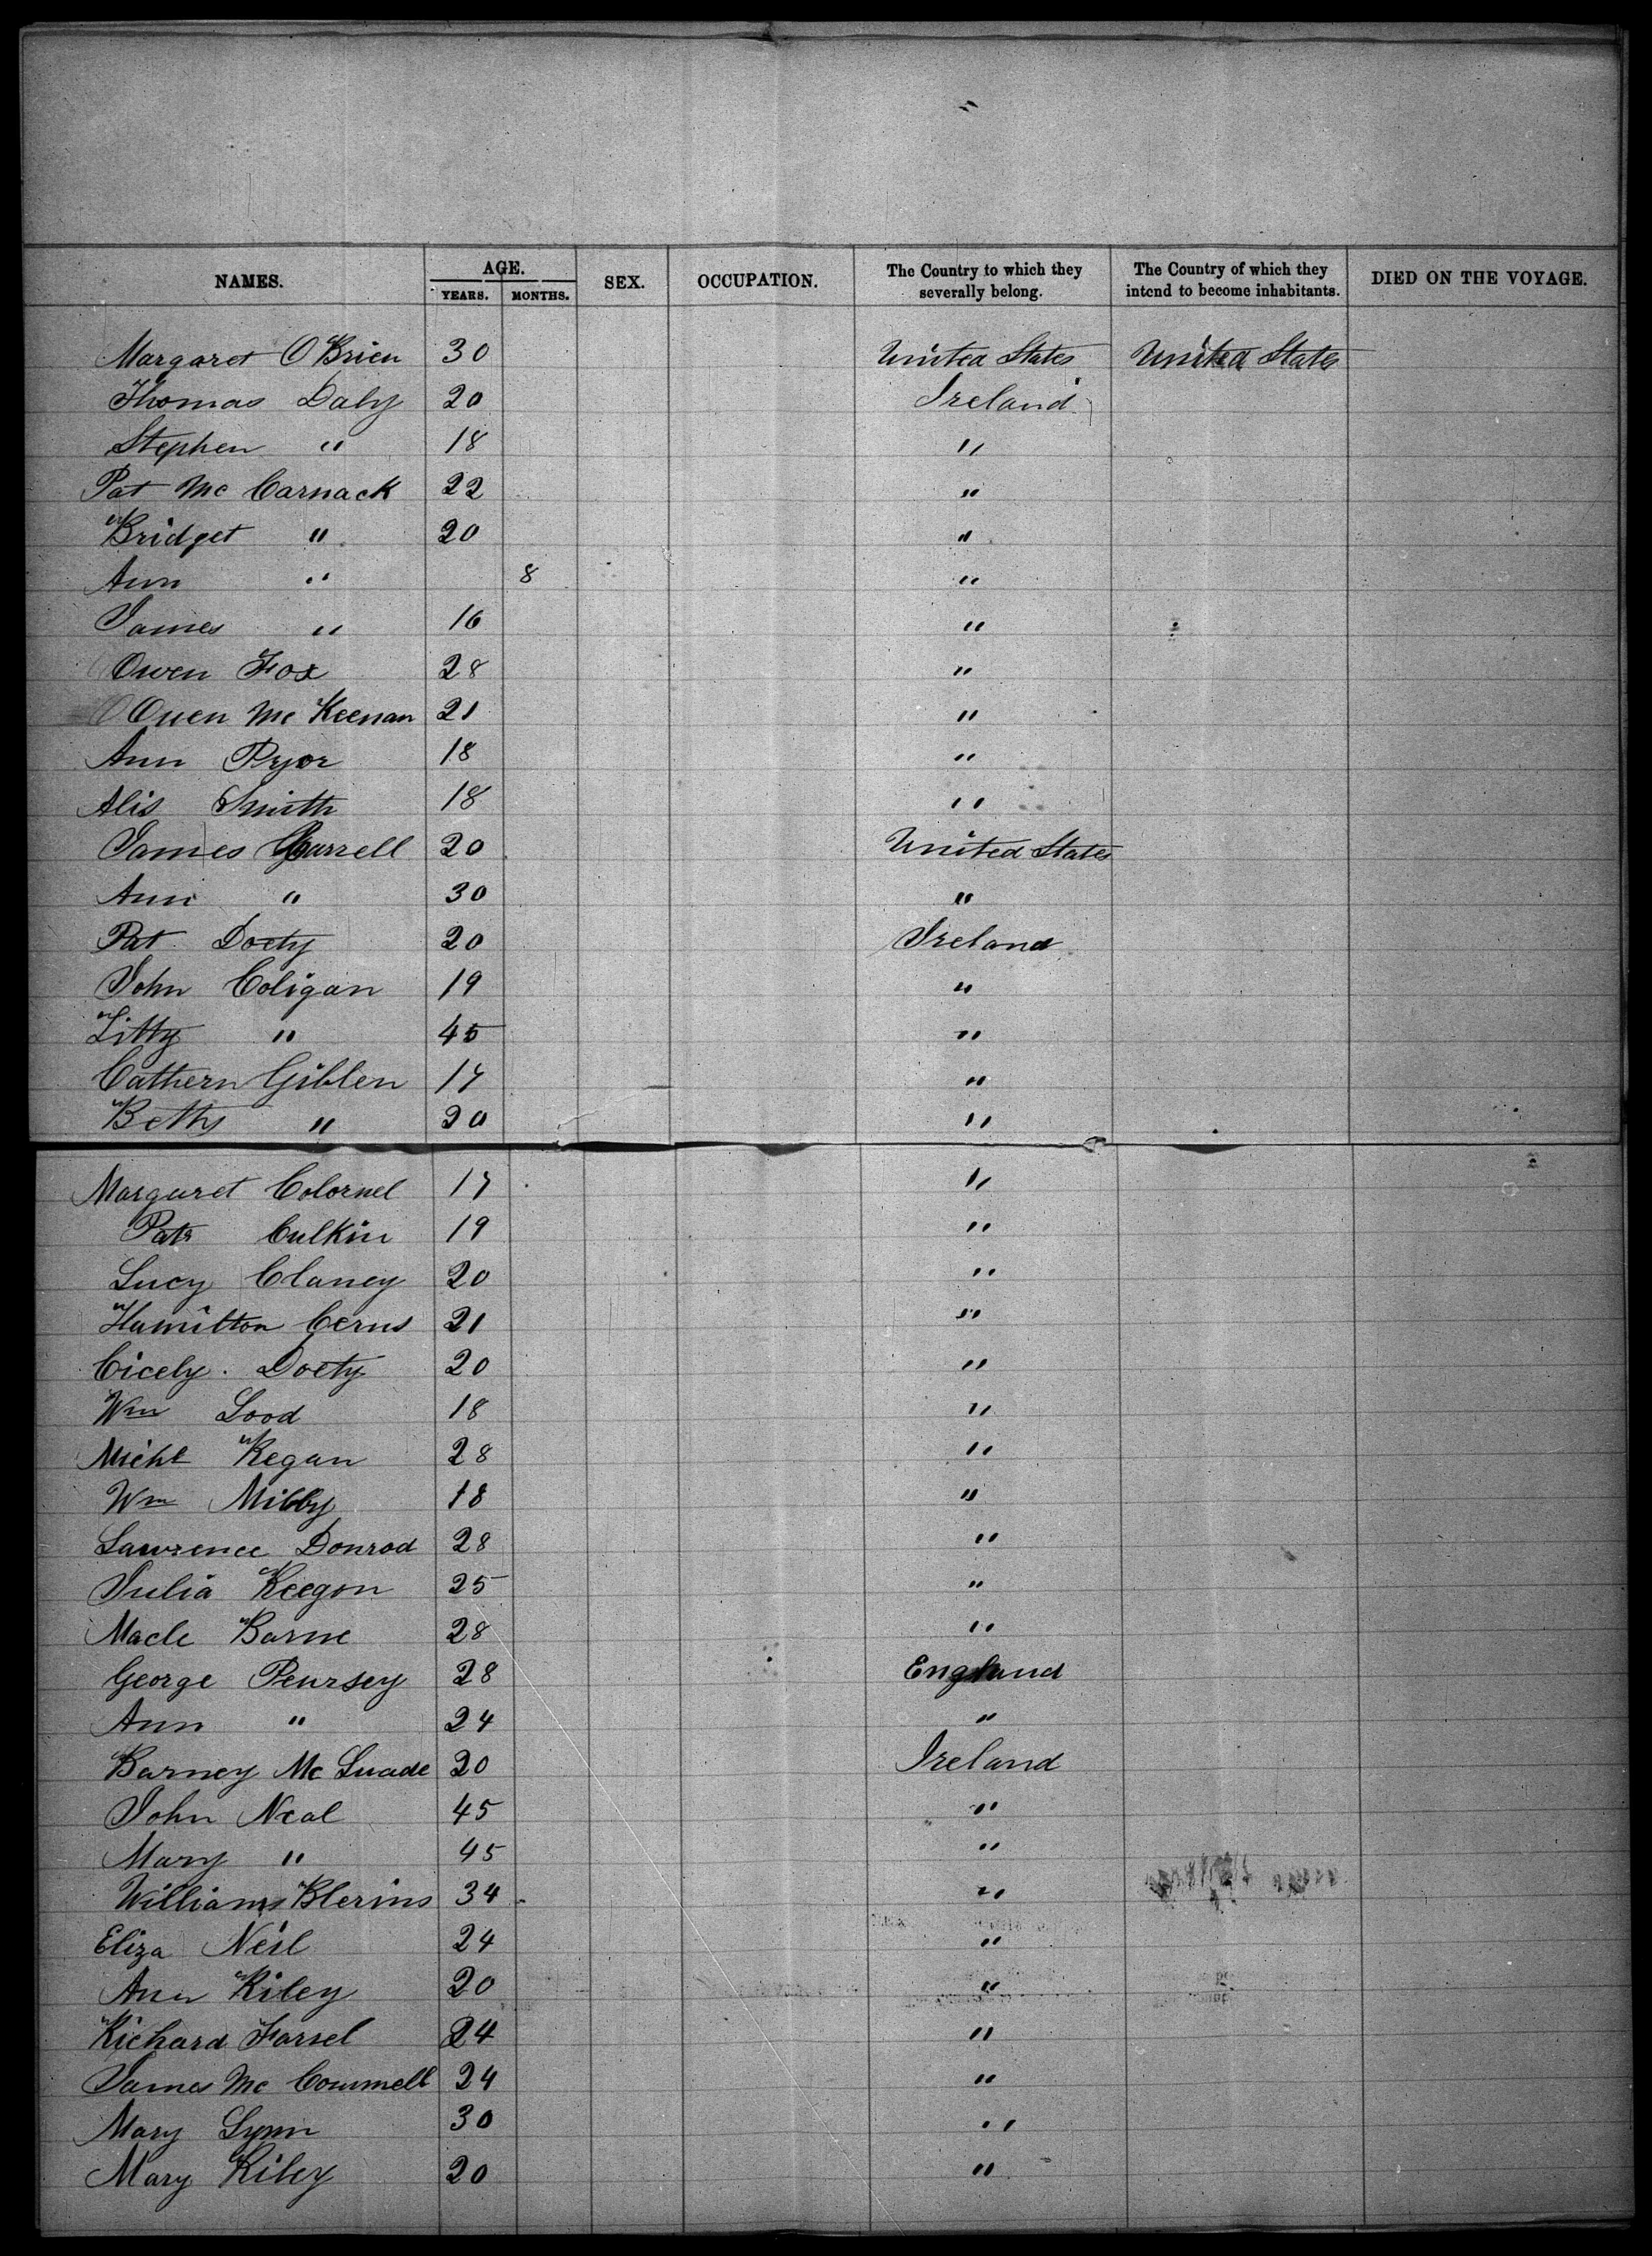 NAMES. AGE. YEARS. MONTHS. SEX. OCCUPATION. The Country to which they severally belong. The Country of which they intend to become inhabitants. DIED ON THE VOYAGE.
Margaret O'Brien 30 United States United States
Thomas Daly 20 Ireland
Stephen " 18 "
Pat Mc Carnack 22 "
Bridget " 20 "
Ann " 8 "
James " 16 "
Owen Fox 28 "
Owen Mc Keenan 21 "
Ann Pryor 18 "
Alis Smith 18 "
James 20 United States
Ann " 30 "
Pat Doety 20 Ireland
John Coligan 19 "
Litty " 45 "
Cathern Giblen 17 "
Bethy " 20 "
Margaret Colornel 17 "
Pat Culkin 19 "
Lucy Clancy 20 "
Hamilton Cerns 21 "
Cicely Doety 20 "
Wm Lood 18 "
Michl Regan 28 "
Wm Milby 18 "
Lawrence Donrod 28 "
Julia Keegon 25 "
Macle Barne 28 "
George Peursey 28 England
Ann " 24 "
Barney Mc Luade 20 Ireland
John Neal 45 "
Mary " 45 "
Williams Blerins 34 "
Eliza Neil 24 "
Ann Riley 20 "
Richard Farrel 24 "
James Mc Connell 24 "
Mary Lynn 30 "
Mary Riley 20 "